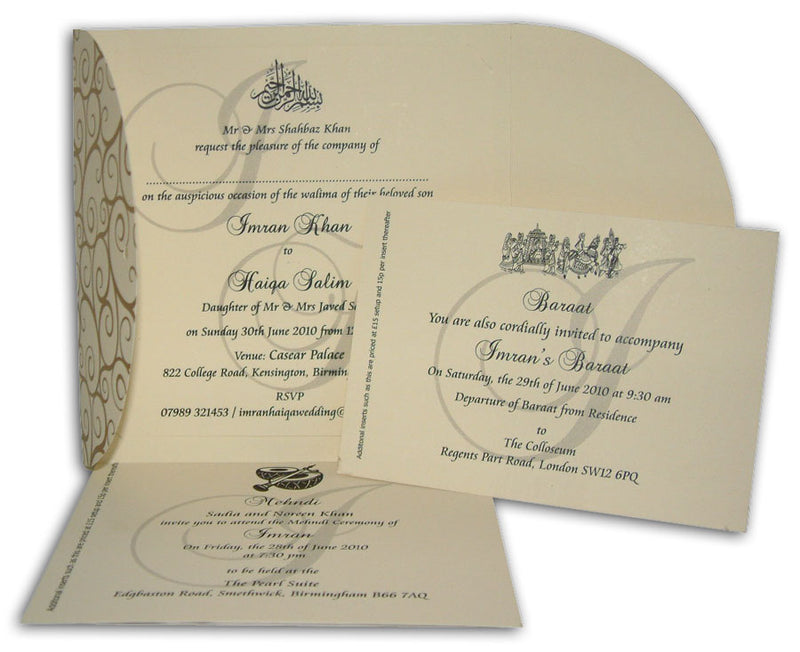 بسم الله الرحمن الرحيم
Mr & Mrs Shahbaz Khan
request the pleasure of the company of
on the auspicious occasion of the walima of their beloved son
Imran Khan
to
Haiqa Salim
Daughter of Mr & Mrs Javed
on Sunday 30th June 2010 from
Venue: Casear Palace
822 College Road, Kensington,
RSVP
07989 321453 / imranhaiqawedding@
Additional inserts such as this are priced at £15 setup and 15p per insert thereafter
Baraat
You are also cordially invited to accompany
Imran's Baraat
On Saturday, the 29th of June 2010 at 9:30 am
Departure of Baraat from Residence
to
The Colloseum
Regents Part Road, London SW12 6PQ
Additional inserts such as this are priced at £15 setup and 15p per insert
Mehndi
Sadia and Noreen Khan
invite you to attend the Mehndi Ceremony of
Imran
On Friday, the 28th of June 2010
at 7:30 pm
to be held at the
The Pearl Suite
Edgbaston Road, Smethwick, Birmingham B66 7AQ